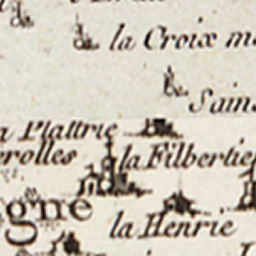 la Croix
Sain
Plattrie
rolles la Filbertie
gne
la Henrie